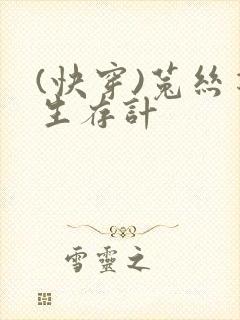 (快穿)菟絲
生存計
雪靈之